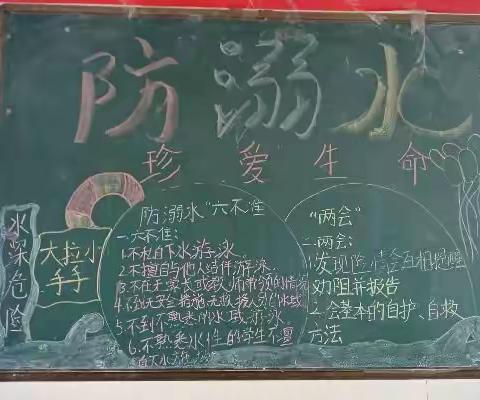 防溺水
珍爱生命
水深危险
大手拉小手
防溺水“六不准”
一.六不准:
1.不私自下水游泳
2.不擅自与他人结伴游泳
3.不在无家长或教师带领的情况
4.不到无安全措施无救援人员的水域
5.不到不熟悉的水域游泳
6.不熟悉水性的学生不擅
自下水
“两会”
二.两会:
1.发现险情会互相提醒
劝阻并报告
2.会基本的自护、自救
方法